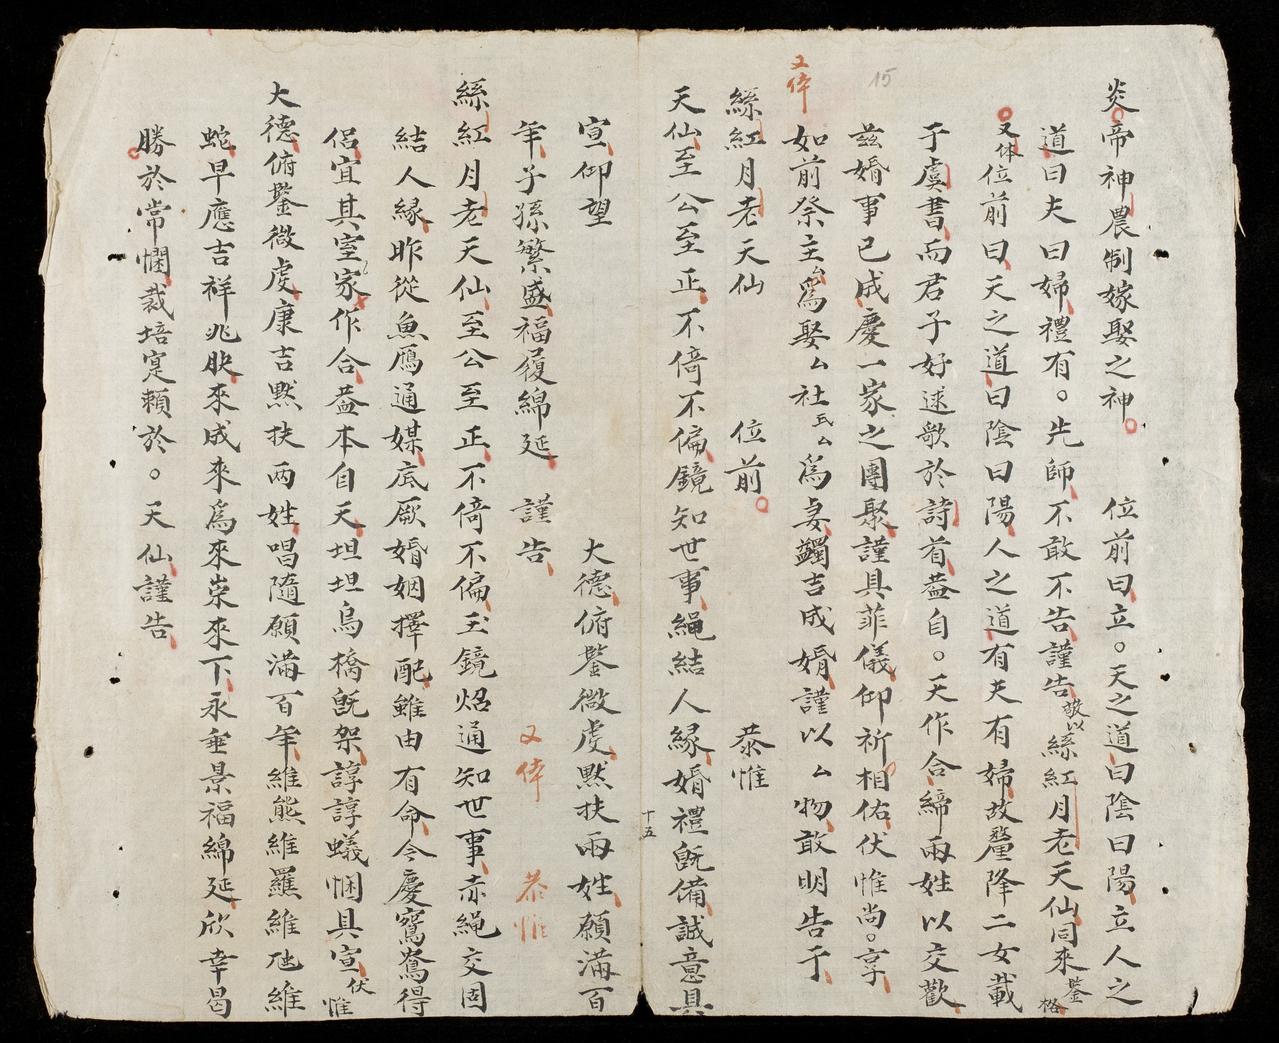 炎帝神農制嫁娶之神 位前曰立。天之道曰陰曰陽立人之
道曰夫曰婦禮有。先師不敢不告謹告敬以絲紅月老天仙同來鑒格
又体位前曰天之道曰陰曰陽人之道有夫有婦故釐降二女載
于虞書而君子好逑歌於詩首葢自。天作合締兩姓以交歡
茲婚事已成慶一家之團聚謹具菲儀仰祈相佑伏惟尚。享
15
又体
如前祭主厶爲娶厶社氏厶爲妻蠲吉成婚謹以厶物敢明告于
絲紅月老天仙 位前 恭惟
天仙至公至正不倚不偏鏡知世事繩結人緣婚禮既備誠意具
十五
宣仰望 大德俯鑒微虔默扶兩姓願滿百
年子孫繁盛福履綿延 謹告 又体 恭惟
絲紅月老天仙至公至正不倚不偏玉鏡炤通知世事赤繩交固
結人緣昨從魚鴈通媒底厥婚姻擇配雖由有命今慶鴛鴦得
侶宜其室家作合葢本自天坦坦烏橋既架諄諄蟻悃具宣伏惟
大德俯鑒微虔康吉默扶兩姓唱隨願滿百年維熊維羆維虺維
蛇早應吉祥兆朕來成來爲來崇來下永垂景福綿延欣幸曷
勝於常悃裁培寔賴於。天仙謹告